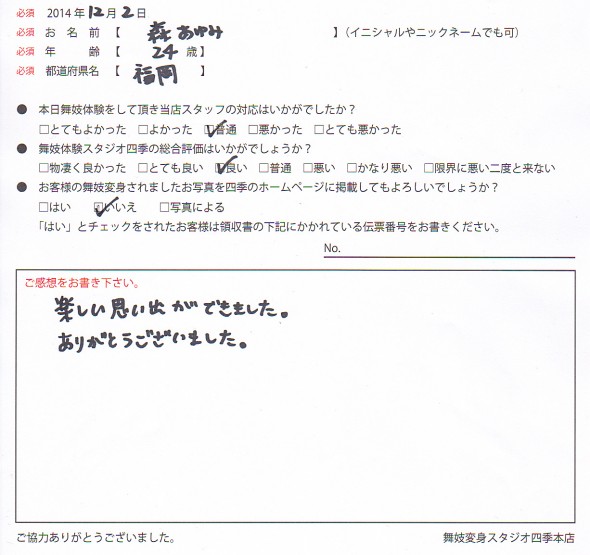 必須 2014年12月2日
必須 お名前【 森 あゆみ 】(イニシャルやニックネームでも可)
必須 年齢【 24 歳】
必須 都道府県名【 福岡 】
● 本日舞妓体験をして頂き当店スタッフの対応はいかがでしたか?
□とてもよかった □よかった ☑普通 □悪かった □とても悪かった
● 舞妓体験スタジオ四季の総合評価はいかがでしょうか?
□物凄く良かった □とても良い ☑良い □普通 □悪い □かなり悪い □限界に悪い二度と来ない
● お客様の舞妓変身されましたお写真を四季のホームページに掲載してもよろしいでしょうか?
□はい ☑いいえ □写真による
「はい」とチェックをされたお客様は領収書の下記にかかれている伝票番号をお書きください。
No.
ご感想をお書き下さい。
楽しい思い出ができました。
ありがとうございました。
ご協力ありがとうございました。 舞妓変身スタジオ四季本店